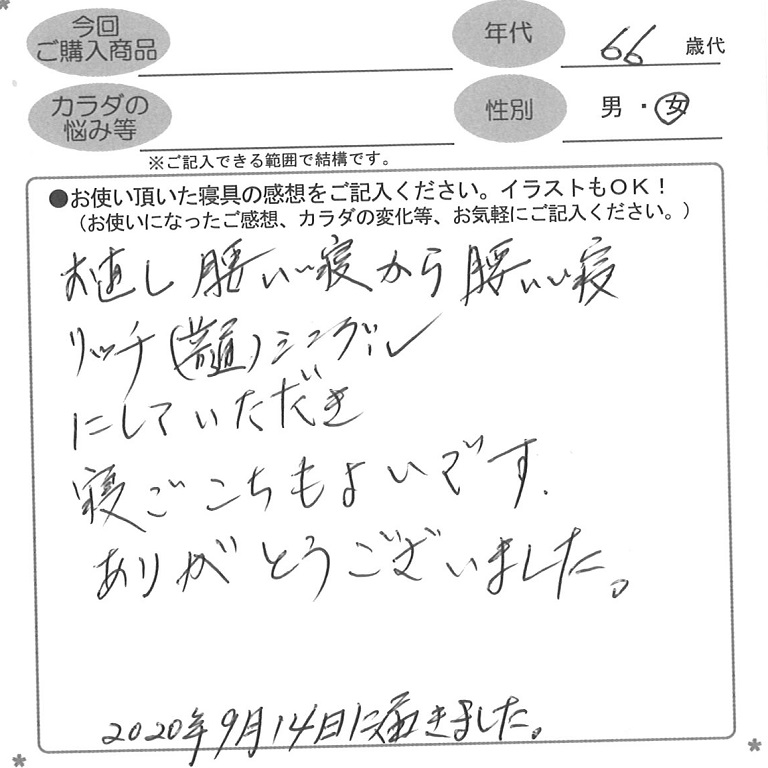 今回
ご購入商品
年代
66 歳代
カラダの
悩み等
性別
男・女
※ご記入できる範囲で結構です。
●お使い頂いた寝具の感想をご記入ください。イラストもOK！
（お使いになったご感想、カラダの変化等、お気軽にご記入ください。）
お直し 腰いい寝から腰いい寝
リッチ( )シングル
にしていただき
寝ごこちもよいです.
ありがとうございました。
2020年9月14日に届きました。